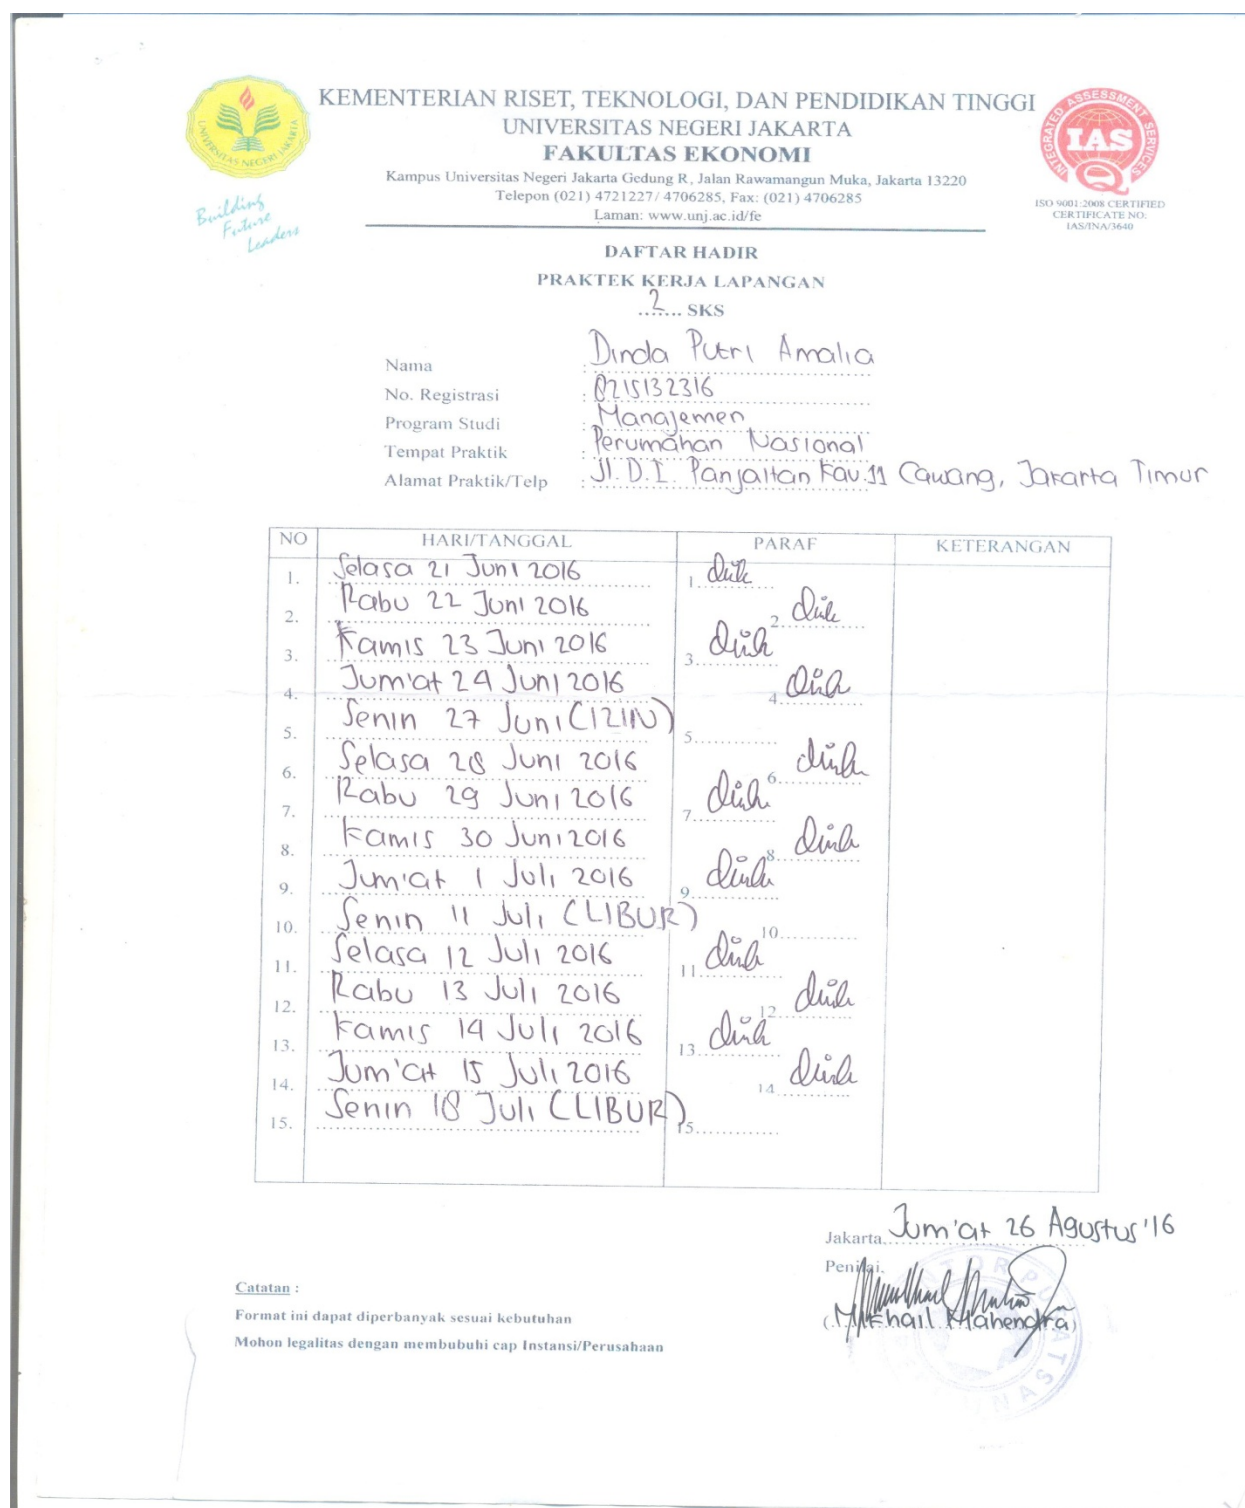 KEMENTERIAN RISET, TEKNOLOGI, DAN PENDIDIKAN TINGGI
UNIVERSITAS NEGERI JAKARTA
FAKULTAS EKONOMI
Kampus Universitas Negeri Jakarta Gedung R, Jalan Rawamangun Muka, Jakarta 13220
Telepon (021) 4721227/ 4706285, Fax: (021) 4706285
Laman: www.unj.ac.id/fe
UNIVERSITAS NEGERI JAKARTA
Building
Future
Leaders
INTEGRATED ASSESSMENT SERVICES
IAS
ISO 9001:2008 CERTIFIED
CERTIFICATE NO:
IAS/INA/3640
DAFTAR HADIR
PRAKTEK KERJA LAPANGAN
..2... SKS
Nama : Dinda Putri Amalia
No. Registrasi : 8215132316
Program Studi : Manajemen
Tempat Praktik : Perumahan Nasional
Alamat Praktik/Telp : Jl. D.I. Panjaitan Kav. 11 Cawang, Jakarta Timur
NO HARI/TANGGAL PARAF KETERANGAN
1. Selasa 21 Juni 2016 1.
2. Rabu 22 Juni 2016 2.
3. Kamis 23 Juni 2016 3.
4. Jum'at 24 Juni 2016 4.
5. Senin 27 Juni (IZIN) 5.
6. Selasa 28 Juni 2016 6.
7. Rabu 29 Juni 2016 7.
8. Kamis 30 Juni 2016 8.
9. Jum'at 1 Juli 2016 9.
10. Senin 11 Juli (LIBUR) 10.
11. Selasa 12 Juli 2016 11.
12. Rabu 13 Juli 2016 12.
13. Kamis 14 Juli 2016 13.
14. Jum'at 15 Juli 2016 14.
15. Senin 18 Juli (LIBUR) 15.
Jakarta, Jum'at 26 Agustus '16
Penilai,
(Mikhail Mahendra)
Catatan :
Format ini dapat diperbanyak sesuai kebutuhan
Mohon legalitas dengan membubuhi cap Instansi/Perusahaan